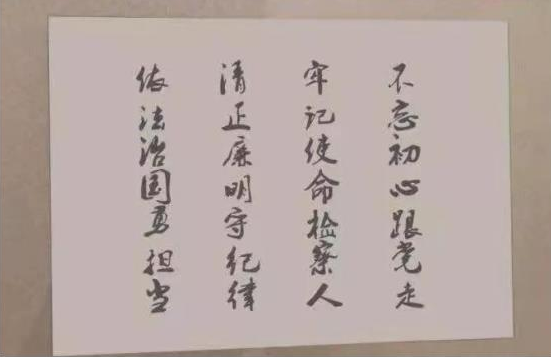 不忘初心跟党走
牢记使命检察人
清正廉明守纪律
依法治国勇担当